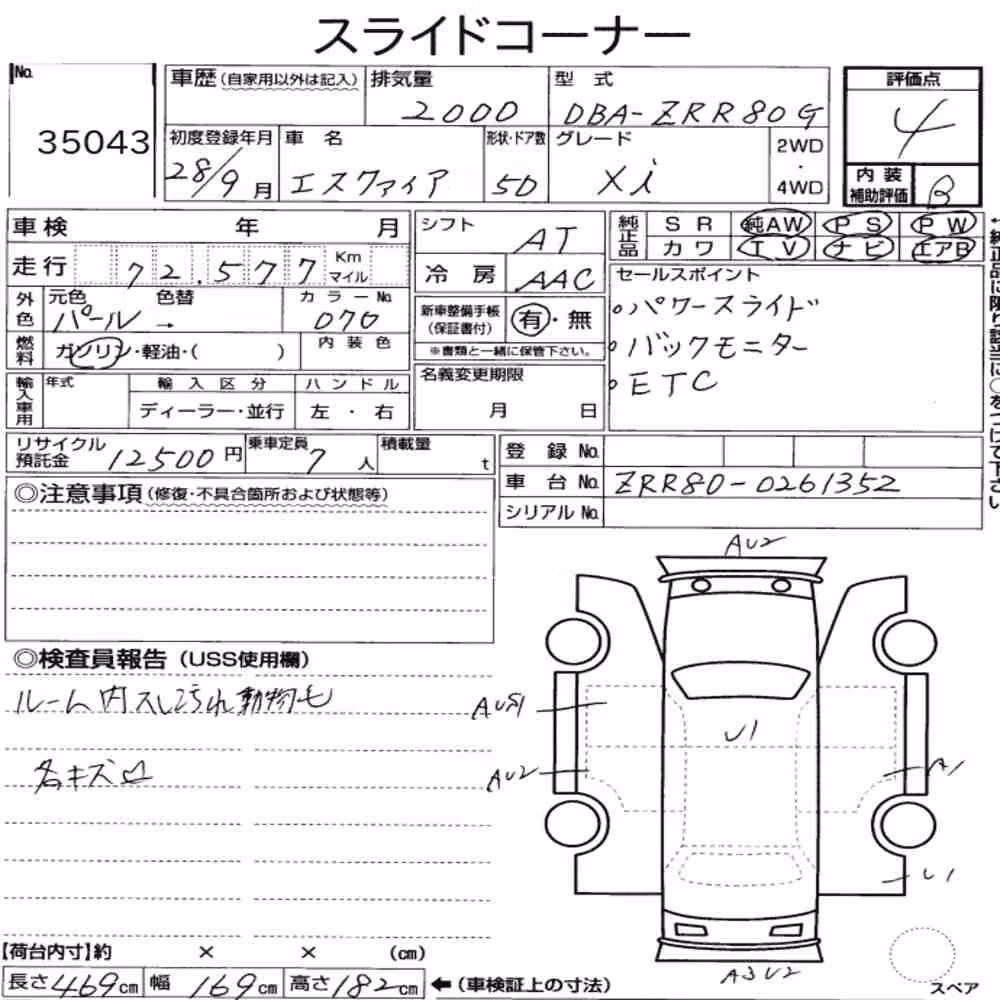 スライドコーナー
No.
35043
車歴(自家用以外は記入)
排気量
2000
型 式
DBA-ZRR80G
評価点
4
初度登録年月
28/9月
車 名
エスクァイア
形状・ドア数
5D
グレード
Xi
2WD
・
4WD
内装
補助評価
B
車検 年 月
走行 72,577 Km
マイル
シフト
AT
冷 房
AAC
純正品
SR 純AW PS PW
カワ TV ナビ エアB
←純正品に限り該当に○をつけて下さい
外色
元色 色替
パール →
カラーNo.
070
新車整備手帳
(保証書付)
有・無
※書類と一緒に保管下さい。
セールスポイント
○パワースライド
○バックモニター
○ETC
燃料
ガソリン・軽油・( )
内装色
輸入車用
年式
輸入区分
ディーラー・並行
ハンドル
左・右
名義変更期限
月 日
リサイクル
預託金 12500円
乗車定員
7人
積載量
t
登 録 No.
車 台 No. ZRR80-0261352
シリアル No.
◎注意事項(修復・不具合箇所および状態等)
AU2
◎検査員報告(USS使用欄)
ルーム内スレ汚れ動物毛
U1
AU2
A1
各キズ凹
U1
【荷台内寸】約 × × (cm)
長さ469cm 幅 169cm 高さ182cm ←(車検証上の寸法)
A3U2
スペア